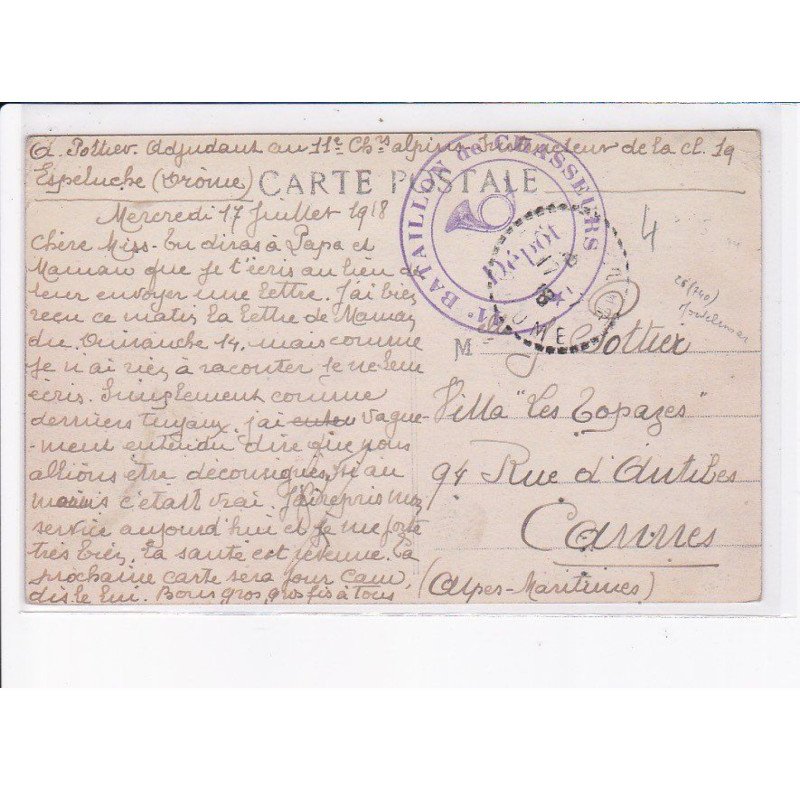 A. Pottier. Adjudant au 11e Chrs alpins Instructeur de la cl. 19
Espeluche (Drôme)
CARTE POSTALE
Mercredi 17 Juillet 1918
Chère Miss. Tu diras à Papa et
Maman que je t'écris au lieu de
leur envoyer une lettre. J'ai bien
reçu ce matin la lettre de Maman
du Dimanche 14. mais comme
je n'ai rien à raconter je ne leur
écris. Simplement comme
derniers tuyaux. j'ai enten vague-
-ment entendu dire que nous
allions être déconsignés, si au
moins c'était vrai. J'ai repris mon
service aujourd'hui et je me porte
très bien. La santé est revenue. La
prochaine carte sera pour Cam,
dis le lui. Bons gros gros fis à tous
11e BATAILLON de CHASSEURS
Dépôt
17
18
M
Pottier
Villa "Les Topazes"
94 Rue d'Antibes
Cannes
(Alpes-Maritimes)
4